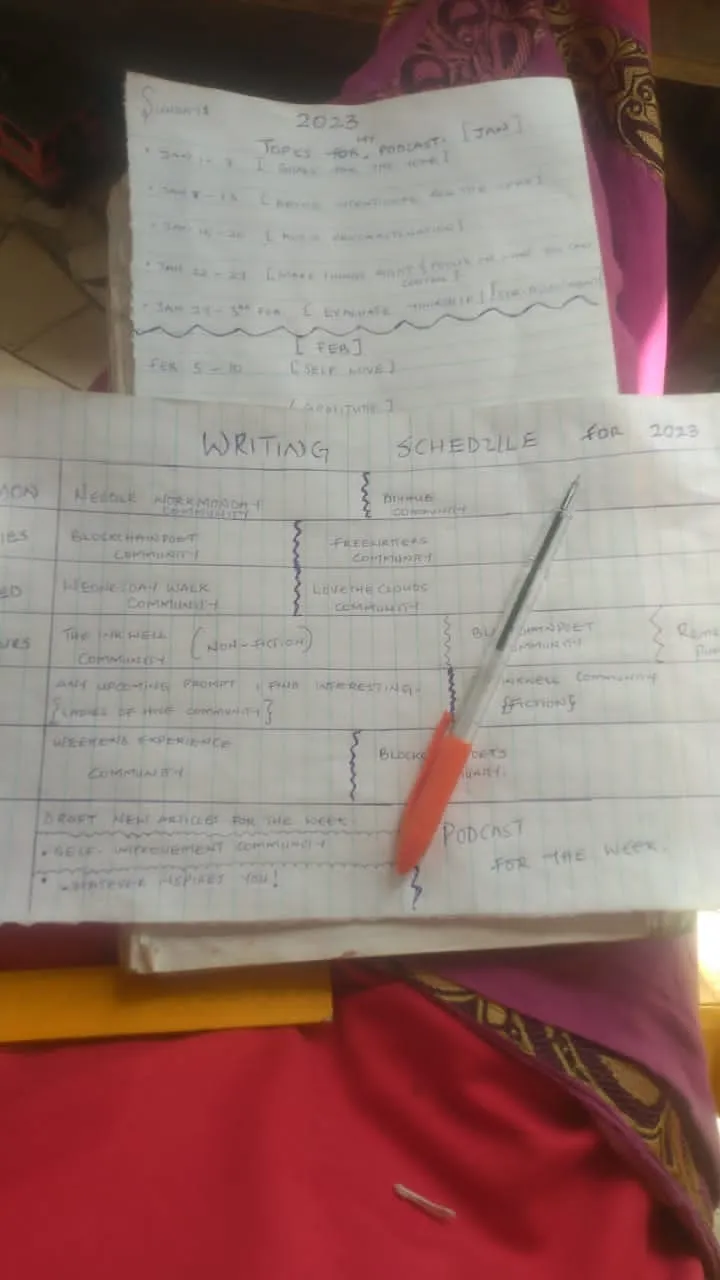 Sundays
2023
TOPICS FOR MY PODCAST. [JAN]
• JAN 1 - 7 [ GOALS FOR THE YEAR ]
• JAN 8 - 13 [ BEING INTENTIONAL THE YEAR ]
• JAN 15 - 20 [ PROCRASTINATION ]
• JAN 22 - 27 [ MAKE THINGS RIGHT FOCUS ON WHAT YOU CAN
CONTROL ]
• JAN 29 - 3RD FEB [ EVALUATE YOURSELF ]
[ FEB ]
FEB 5 - 10 [ SELF LOVE ]
WRITING SCHEDULE FOR 2023
MON NEEDLE WORKMONDAY
COMMUNITY
COMMUNITY
UES BLOCKCHAINPOET
COMMUNITY
FREEWRITERS
COMMUNITY
ED WEDNESDAY WALK
COMMUNITY
LOVETHECLOUDS
COMMUNITY
URS THE INKWELL (NON-FICTION)
COMMUNITY
ANY UPCOMING PROMPT I FIND INTERESTING.
{LADIES OF HIVE COMMUNITY}
INKWELL COMMUNITY
{FICTION}
WEEKEND EXPERIENCE
COMMUNITY
DRAFT NEW ARTICLES FOR THE WEEK
• SELF-IMPROVEMENT COMMUNITY
• WHATEVER INSPIRES YOU!
PODCAST
FOR THE WEEK.